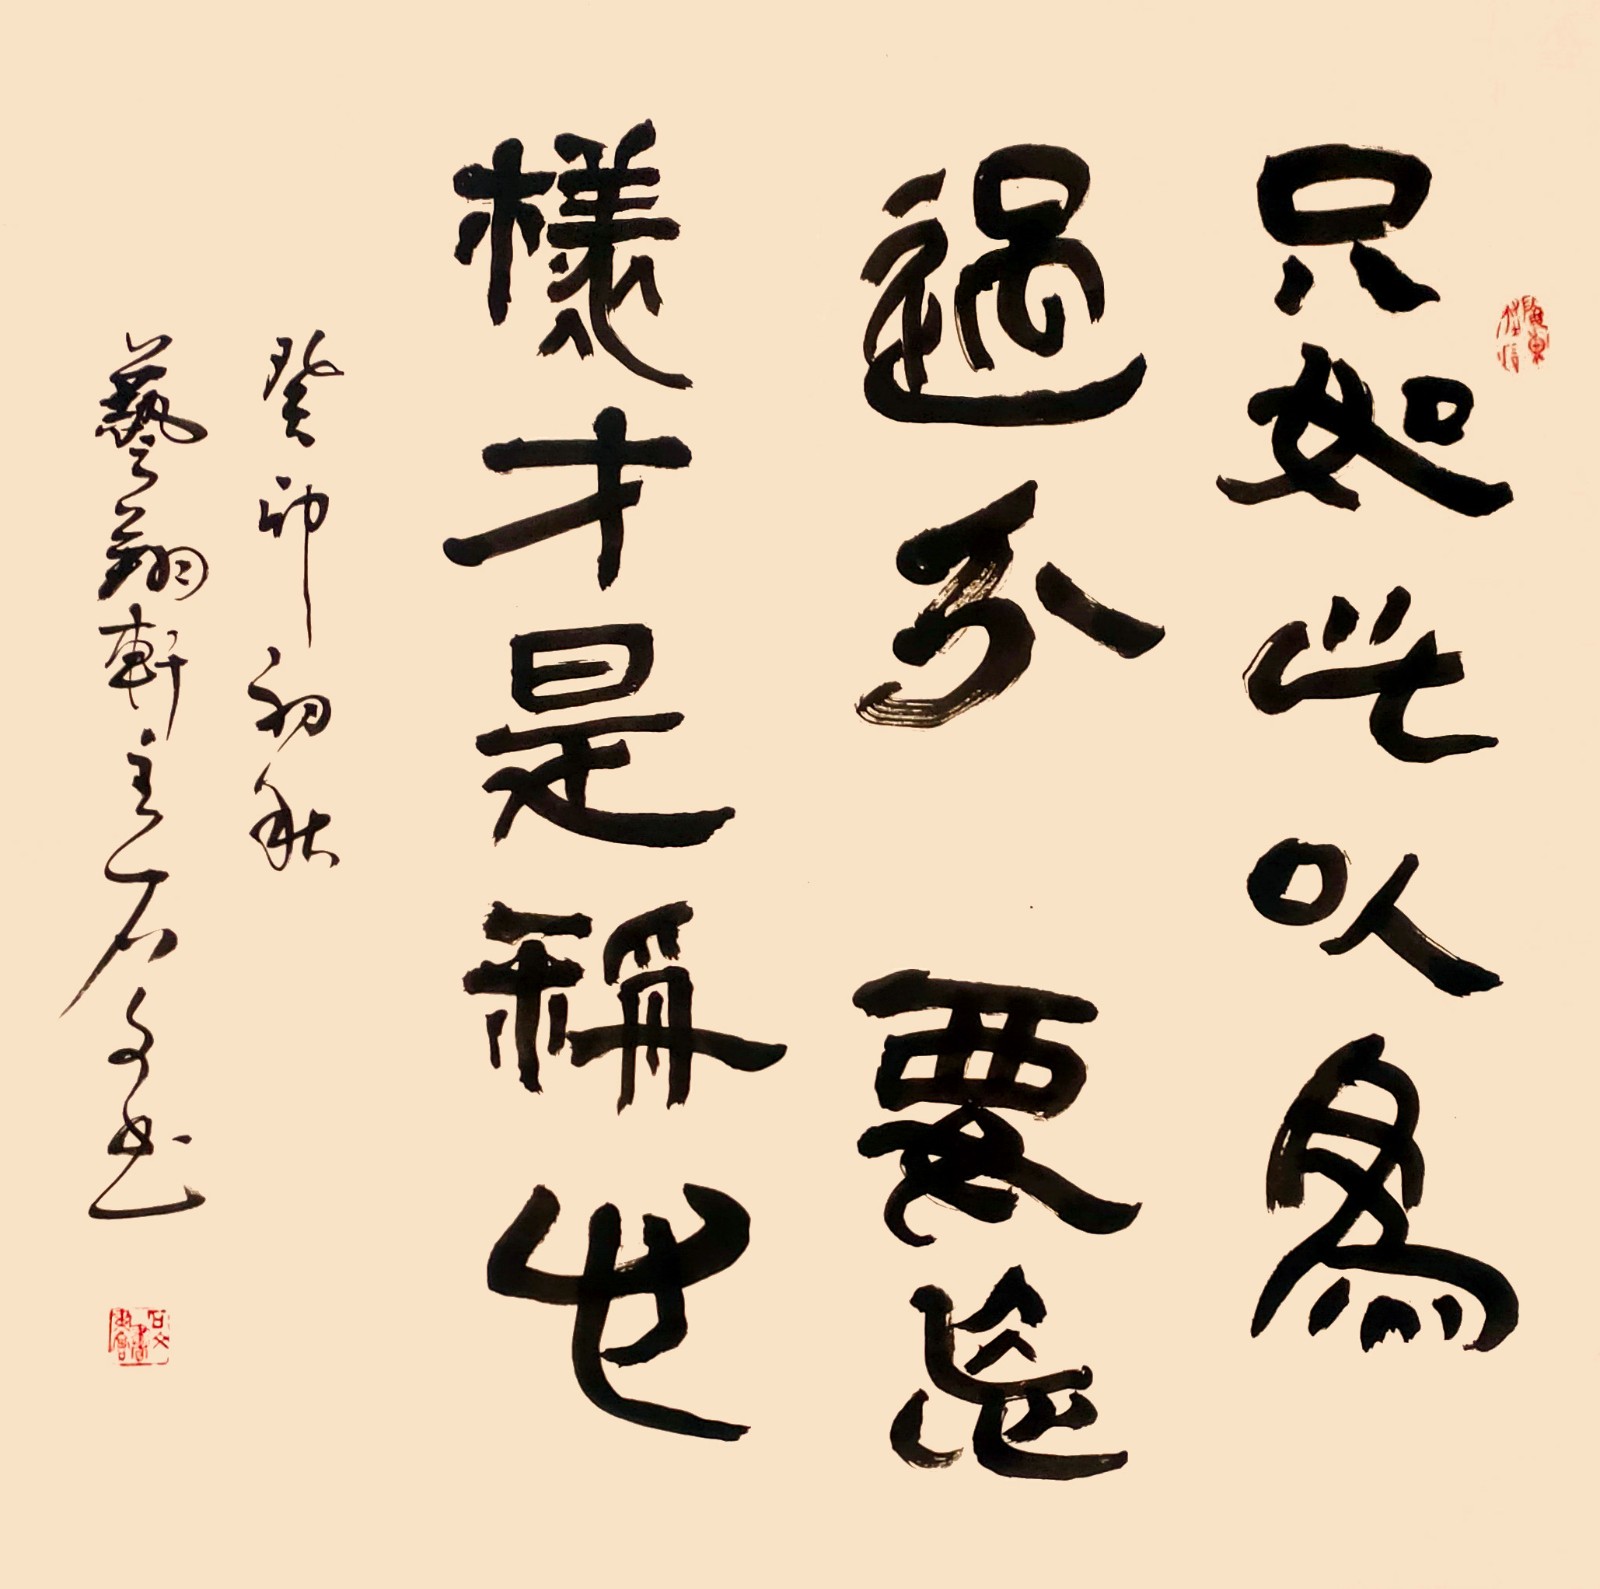 只如此以為
過分 要怎
樣才是稱也
癸卯初秋
藝翔軒主石文书